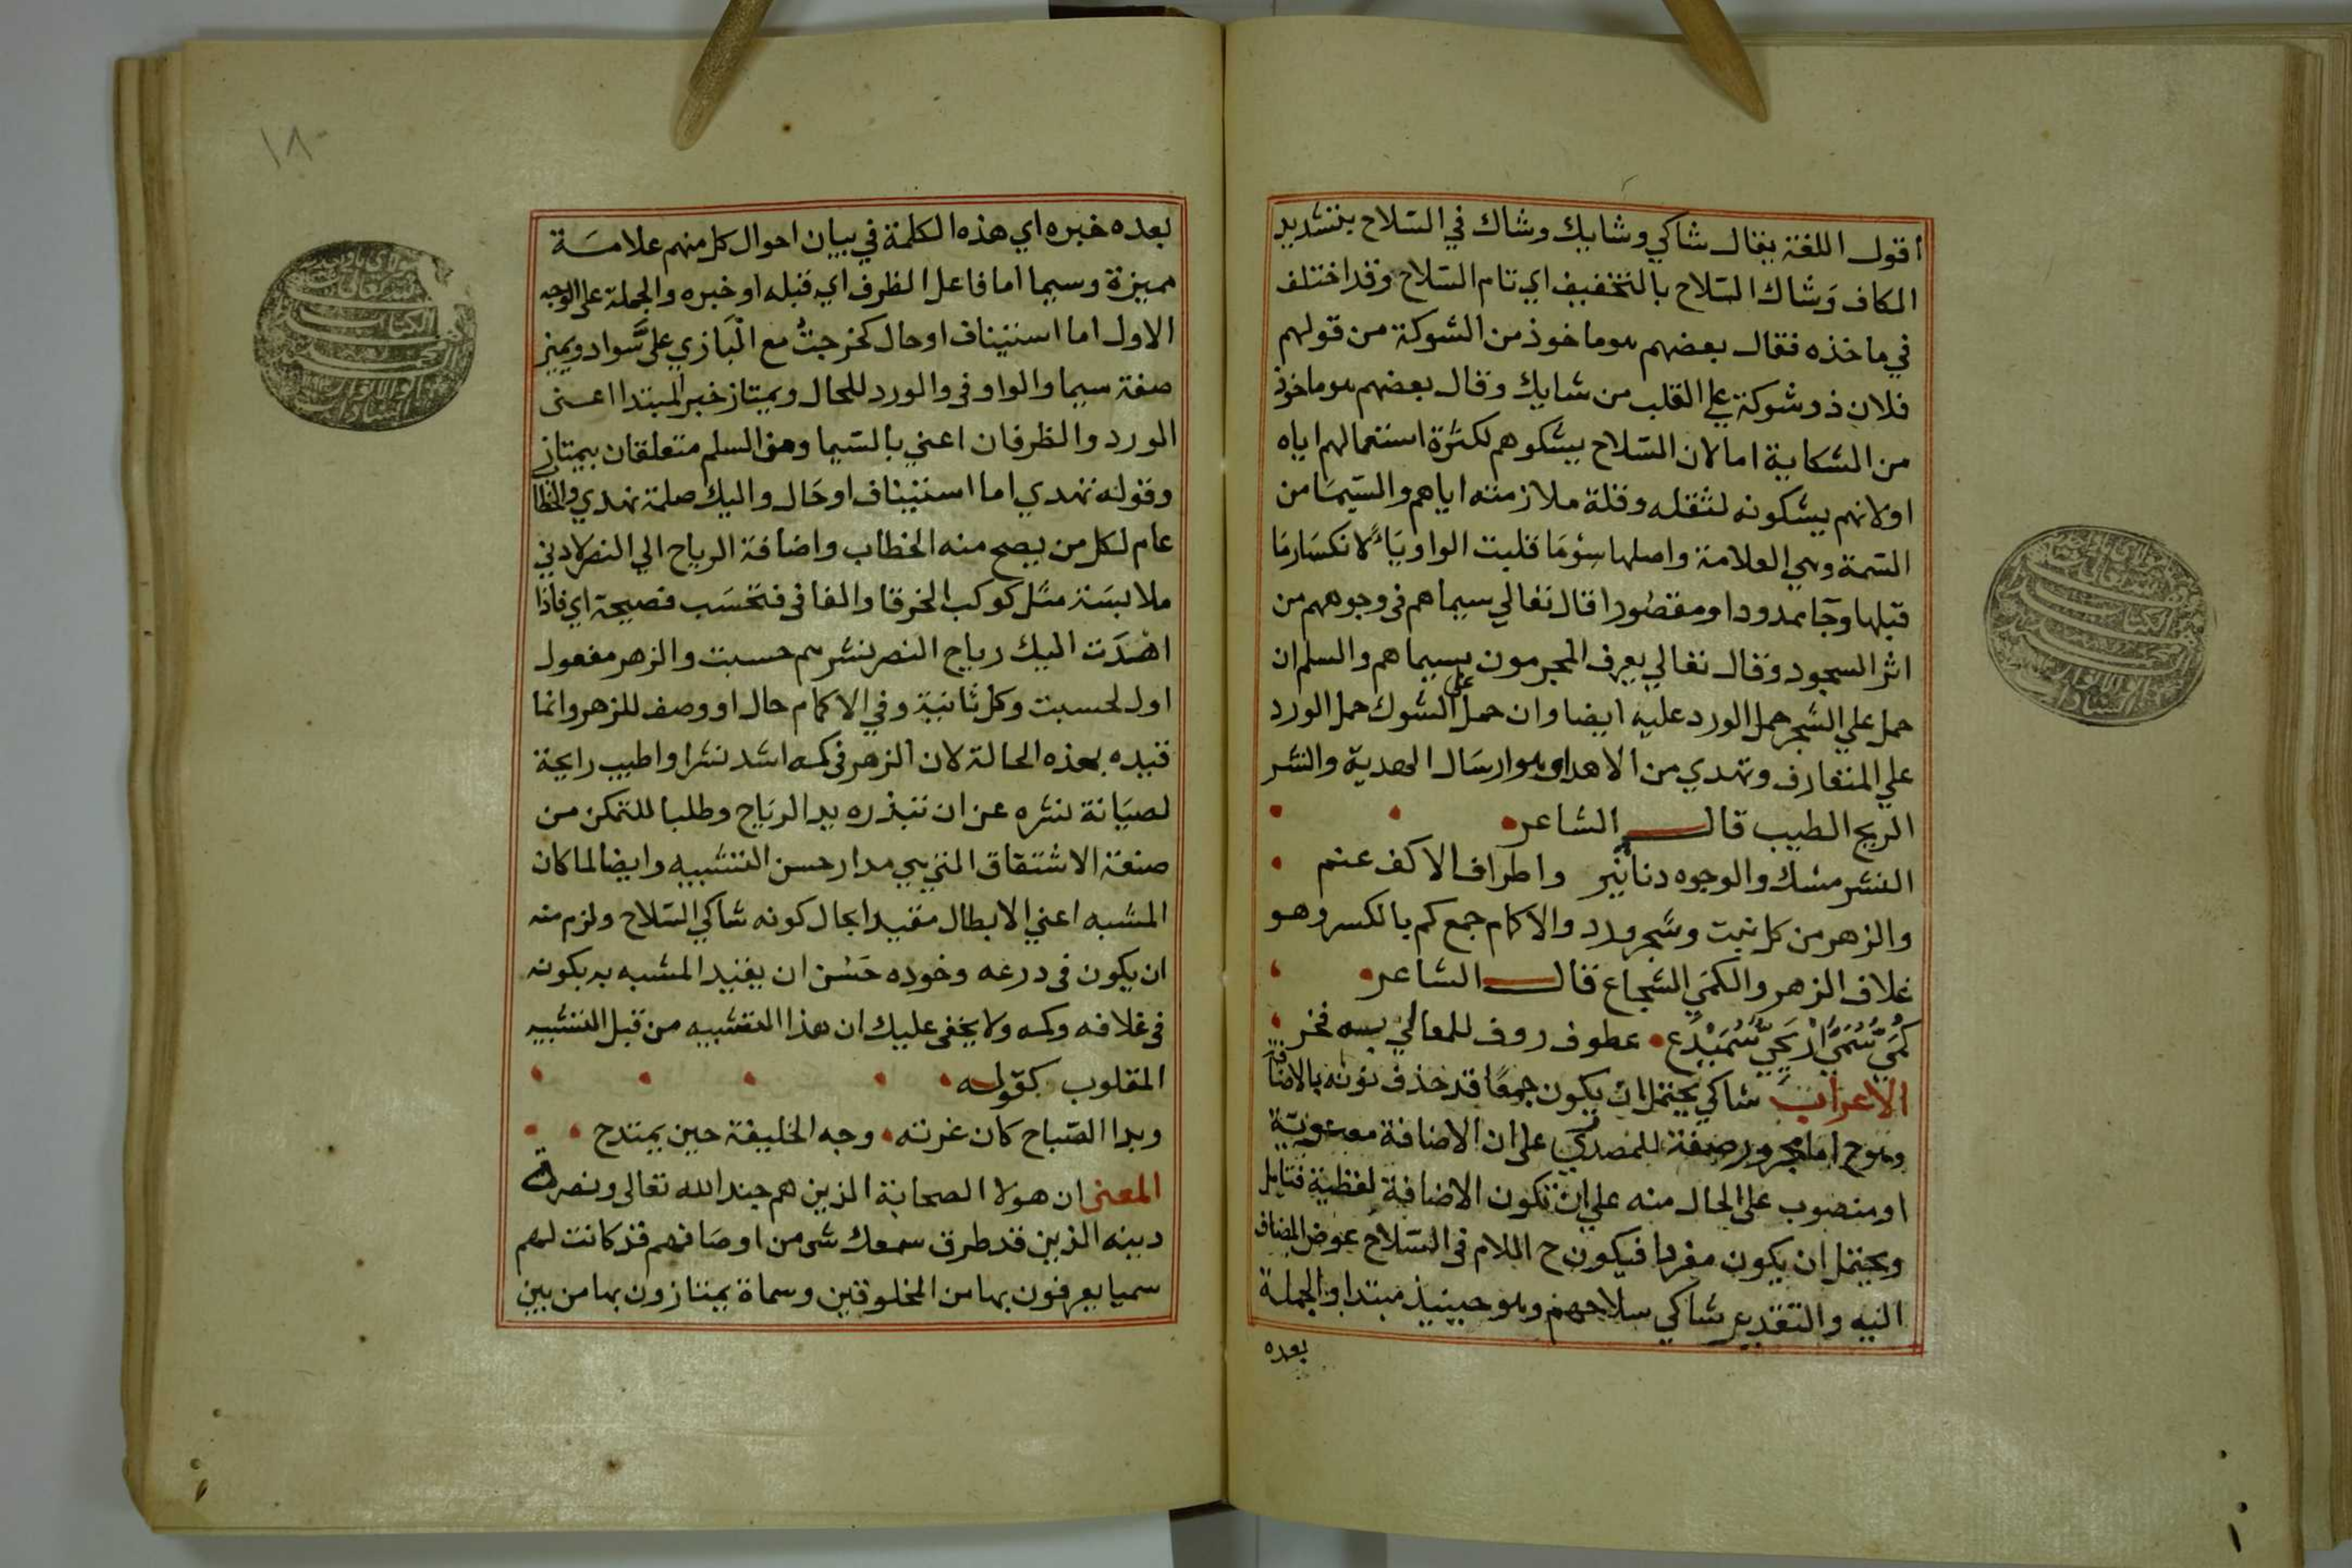 اقول اللغة يقال شاكي وشايك وشاك في السلاح بتشديد
الكاف وشاك السلاح بالتخفيف اي تام السلاح وقد اختلف
في ماخذه فقال بعضهم هو ماخوذ من الشوكة من قولهم
فلان ذو شوكة علي القلب من شايك وقال بعضهم هو ماخوذ
من الشكاية اما لان السلاح يشكوهم لكثرة استعمالهم اياه
اولانهم يشكونه لثقله وقلة ملازمته اياهم والسيما من
السمة وهي العلامة واصلها سِوْمَا قلبت الواو ياءً لانكسار ما
قبلها وجآ ممدودا ومقصورا قال تعالي سيماهم في وجوههم من
اثر السجود وقال تعالي يعرف المجرمون بسيماهم والسلم ان
حمل علي الشجر حمل الورد عليه ايضا وان حمل علي الشوك حمل الورد
علي المتعارف وتهدي من الاهدا وهو ارسال الهدية والنشر
الريح الطيب قال الشاعر
النشر مسك والوجوه دنانير واطراف الاكف عنم
والزهر من كل نبت وشجر ورد والاكمام جمع كم بالكسر وهو
غلاف الزهر والكمي الشجاع قال الشاعر
كمي سمي اريحي سميدع عطوف روف للمعالي به فخر
الاعراب شاكي يحتمل ان يكون جمعًا قد حذف نونه بالاضافة
وهو ح اما مجرور صفة للمصدري علي ان الاضافة معنوية
او منصوب علي الحال منه علي ان تكون الاضافة لفظية فتامل
ويحتمل ان يكون مفردا فيكون ح اللام في السلاح عوض المضاف
اليه والتقدير شاكي سلاحهم وهو حينيذ مبتدا والجملة
بعده
١٨
بعده خبره اي هذه الكلمة في بيان احوال كل منهم علامة
مميزة وسيما اما فاعل الظرف اي قبله او خبره والجملة علي الوجه
الاول اما استيناف او حال كخرجتُ مع البازي علي سواد ويميز
صفة سيما والواو في والورد للحال ويمتاز خبر المبتدا اعني
الورد والظرفان اعني بالسيما ومن السلم متعلقان بيمتاز
وقوله تهدي اما استيناف او حال واليك صلة تهدي والخطا
عام لكل من يصح منه الخطاب واضافة الرياح الي النصر لادني
ملابسة مثل كوكب الخرقا والفا في فتحسب فصيحة اي فاذا
اهدَت اليك رياح النصر نشرهم حسبت والزهر مفعول
اول لحسبت وكل ثانية وفي الاكمام حال او وصف للزهر وانما
قيده بهذه الحالة لان الزهر في كمه اشد نشرا واطيب رايحة
لصيانة نشره عن ان تبذره يد الرياح وطلبا للتمكن من
صنعة الاشتقاق التي هي مدار حسن التشبيه وايضا لما كان
المشبه اعني الابطال مقيدا بحال كونه شاكي السلاح ولزم منه
ان يكون في درعه وخوده حَسُن ان يقيد المشبه به بكونه
في غلافه وكمه ولا يخفي عليك ان هذا التشبيه من قبل التشبيه
المقلوب كقوله
وبدا الصباح كان غرته وجه الخليفة حين يمتدح
المعني ان هولا الصحابة الذين هم جند الله تعالي ونصرة
دينه الذين قد طرق سمعك شي من اوصافهم قد كانت لهم
سميا يعرفون بها من المخلوقين وسماة يمتازون بها من بين